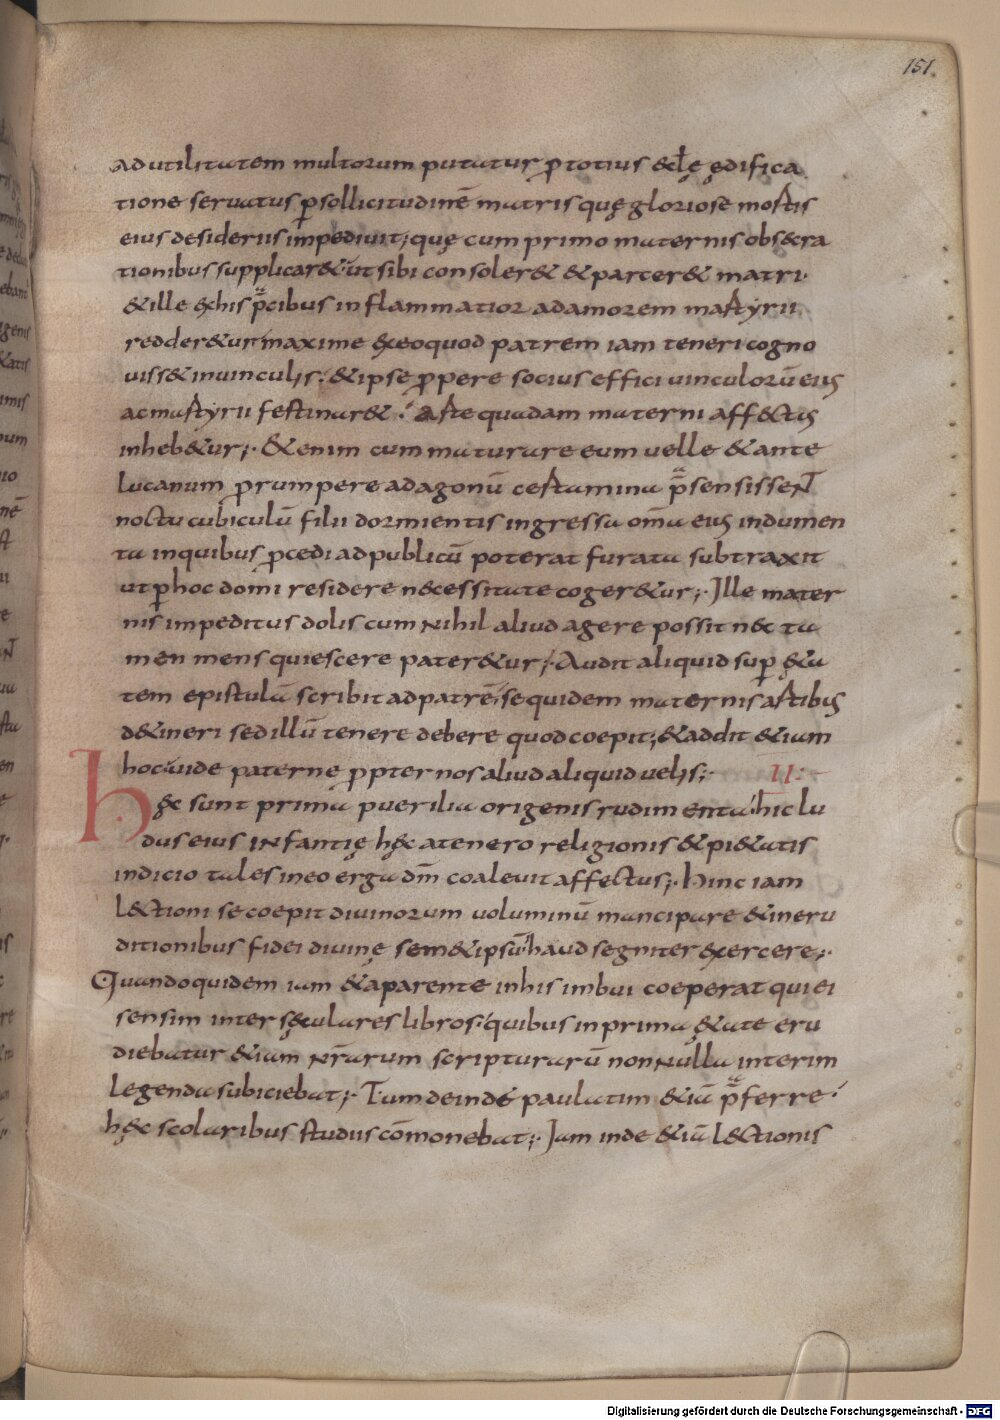 151.
ad utilitatem multorum putatur ꝓ totius &cłę ędifica
tione seruatus ꝑ sollicitudinē matris quę gloriose mortis
eius desideriis impediuit; quę cum primo maternis obs&cra
tionibus supplicar&· ut sibi consoler& & parcer& matri·
& ille ęx his p̄cibus inflammatior ad amorem martyrii
redder&ur maxime ęx eo quod patrem iam teneri cogno
uiss& in uinculis; & ipse ꝓpere socius effici uinculorū eiꝰ
ac martyrii festinar&; Arte quadam materni aff&ctꝰ
inheb&ur;· &enim cum maturare eum uelle & ante
lucanum ꝓrumpere ad agonū certamina p̄sensissent
noctu cubiculū filii dormientis ingressa om̄a eiꝰ indumen
ta in quibus ꝓcedi ad publicū poterat furata subtraxit
ut ꝑ hoc domi residere necessitate coger&ur;· Ille mater
nis impeditus dolis cum nihil aliud agere possit nec ta
men mens quiescere pater&ur;· Audit aliquid suꝑ ę&a
tem epistulā scribit ad patrē; se quidem maternis artibꝰ
d&ineri sed illū tenere debere quod coepit; & addit &iam
hoc uide pater ne ꝓpter nos aliud aliquid uelis;· II·
hęc sunt prima puerilia origenis rudimenta· hic lu
dus eius infantię hęc a tenero religionis & pi&atis
indicio tales in eo erga dm̄ coaleuit affectus;· hinc iam
l&ctioni se coepit diuinorum uoluminū mancipare & in eru
ditionibus fidei diuinę sem&ipsū haud segniter exercere;·
Quandoquidem iam & a parente in his imbui coeperat qui ei
sensim inter sęculares libros· quibus in prima ę&ate eru
diebatur &iam nr̄arum scripturarū nonnulla interim
legenda subiciebat;· Tum deinde paulatim &iā p̄ferre·
hęc scolaribus studiis cōmonebat;· Iam inde &iā l&ctionis
Digitalisierung gefördert durch die Deutsche Forschungsgemeinschaft - DFG